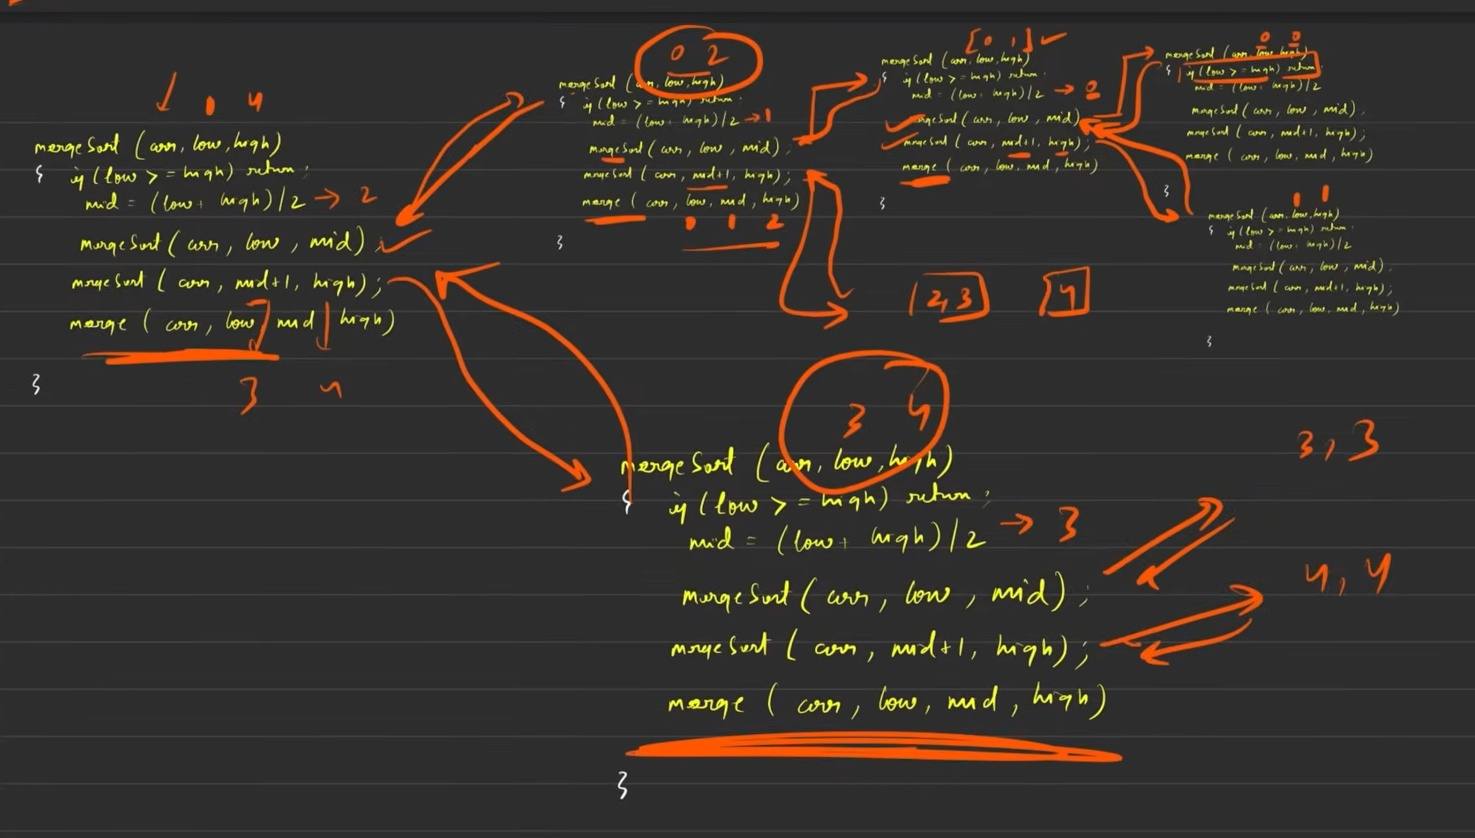 0 4
mergeSort (arr, low, high)
{ if (low >= high) return;
mid = (low + high)/2 → 2
mergeSort (arr, low, mid);
mergeSort (arr, mid+1, high);
merge (arr, low, mid, high)
3 4
}
0 2
mergeSort (arr, low, high)
{ if (low >= high) return;
mid = (low + high)/2 → 1
mergeSort (arr, low, mid);
mergeSort (arr, mid+1, high);
merge (arr, low, mid, high)
0 1 2
}
[0 1]
mergeSort (arr, low, high)
{ if (low >= high) return;
mid = (low + high)/2 → 0
mergeSort (arr, low, mid)
mergeSort (arr, mid+1, high);
merge (arr, low, mid, high)
}
0 0
mergeSort (arr, low, high)
{ if (low >= high) return;
mid = (low + high)/2
mergeSort (arr, low, mid);
mergeSort (arr, mid+1, high);
merge (arr, low, mid, high)
}
1 1
mergeSort (arr, low, high)
{ if (low >= high) return;
mid = (low + high)/2
mergeSort (arr, low, mid);
mergeSort (arr, mid+1, high);
merge (arr, low, mid, high)
}
2,3 4
3 4
mergeSort (arr, low, high)
{ if (low >= high) return;
mid = (low + high)/2 → 3
mergeSort (arr, low, mid);
mergeSort (arr, mid+1, high);
merge (arr, low, mid, high)
}
3, 3
4, 4